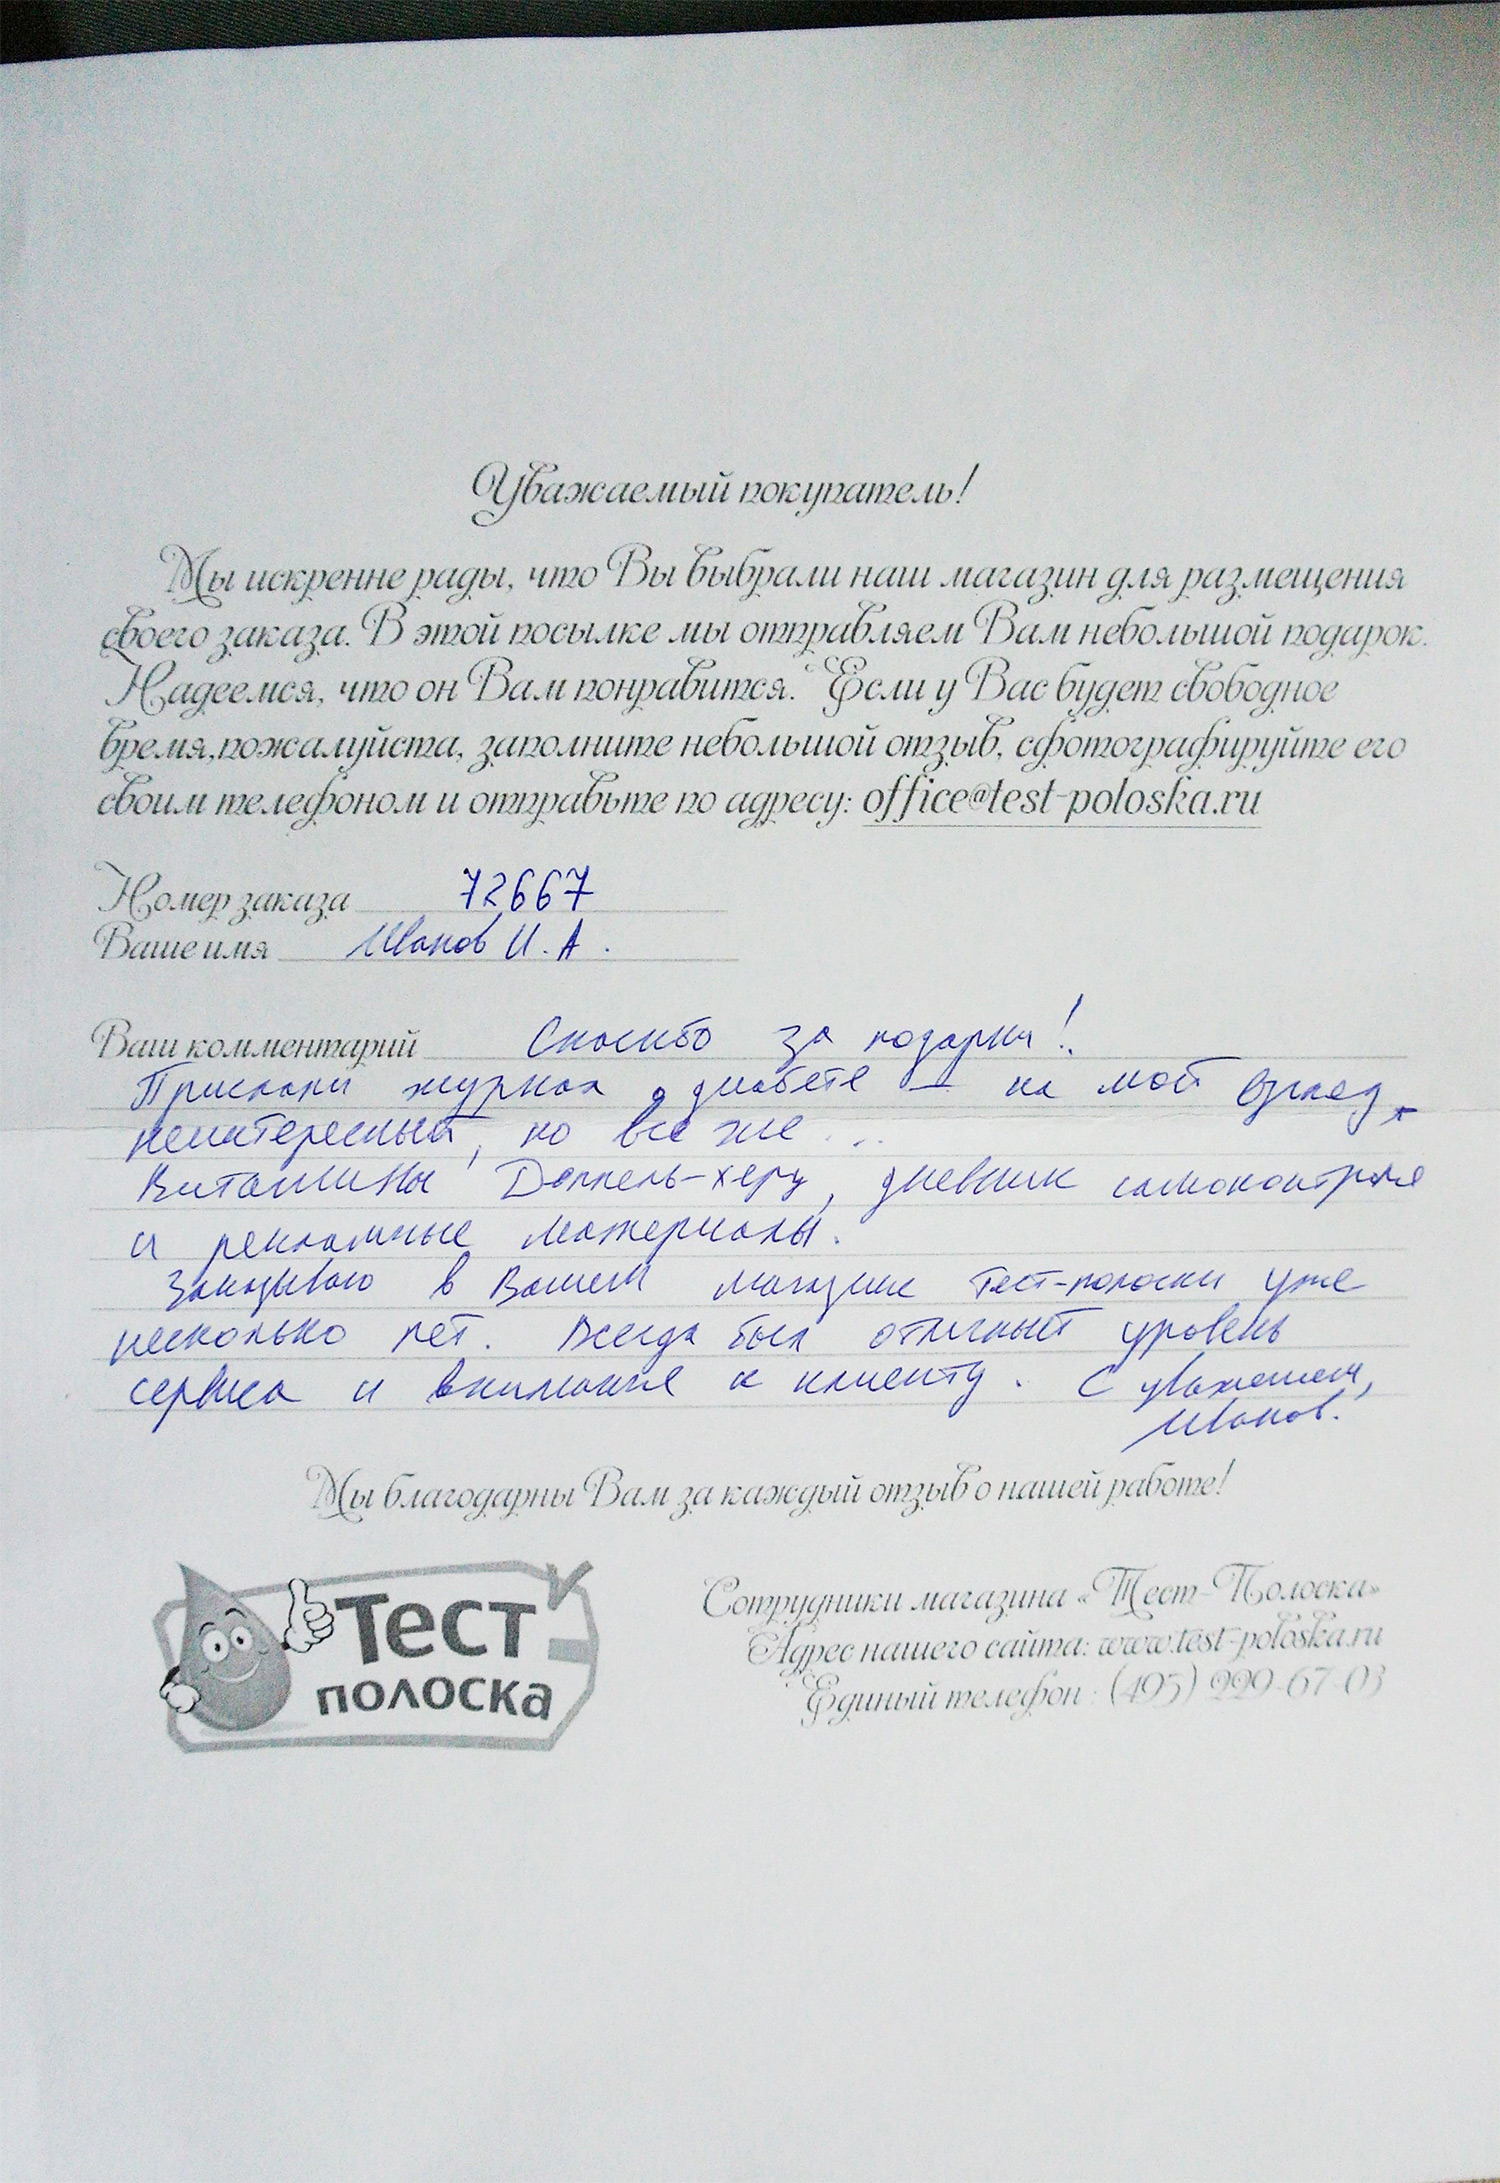 Уважаемый покупатель!
Мы искренне рады, что Вы выбрали наш магазин для размещения
своего заказа. В этой посылке мы отправляем Вам небольшой подарок.
Надеемся, что он Вам понравится. Если у Вас будет свободное
время,пожалуйста, заполните небольшой отзыв, сфотографируйте его
своим телефоном и отправьте по адресу: office@test-poloska.ru
Номер заказа 72667
Ваше имя Иванов И.А.
Ваш комментарий Спасибо за подарки!
Прислали журнал о диабете – на мой взгляд,
неинтересный, но все же...
Витамины Доппель-херц, дневник самоконтроля
и рекламные материалы.
Заказываю в Вашем магазине тест-полоски уже
несколько лет. Всегда был отличный уровень
сервиса и внимания к клиенту. С уважением,
Иванов.
Мы благодарны Вам за каждый отзыв о нашей работе!
Тест
полоска
Сотрудники магазина «Тест-Полоска»
Адрес нашего сайта: www.test-poloska.ru
Единый телефон: (495) 229-67-03